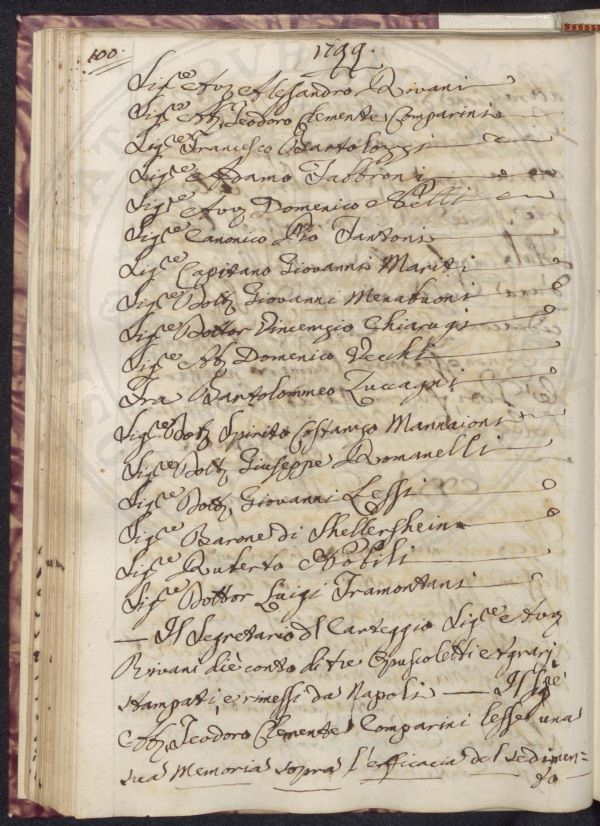 100.
1799.
Sig.re Avv Alessandro Rivani
Sig.re Ab. Teodoro Clemente Comparini
Sig.re Francesco Bartolozzi
Sig.re Adamo Fabbroni
Sig.re Avv Domenico Nelli
Sig.re Canonico Pio Fantoni
Sig.re Capitano Giovanni Mariti
Sig.re Dott. Giovanni Menabuoni
Sig.re Dottor Vincenzio Chiarugi
Sig.re Ab. Domenico Vecchi
Fra Bartolommeo Zuccagni
Sig.re Dott. Spirito Costanzo Mannaioni
Sig.re Dott. Giuseppe Romanelli
Sig.re Dott. Giovanni Lessi
Sig.re Barone di Shellershein
Sig.re Ruberto Nobili
Sig.re Dottor Luigi Tramontani
— Il Segretario dl Carteggio Sig.re Avv
Rivani diè conto di tre Opuscoletti Agrarj
stampati, e rimessi da Napoli — Il Sig.re
Ab. Teodoro Clemente Comparini lesse una
sua Memoria sopra l'efficacia del sedimen=
to